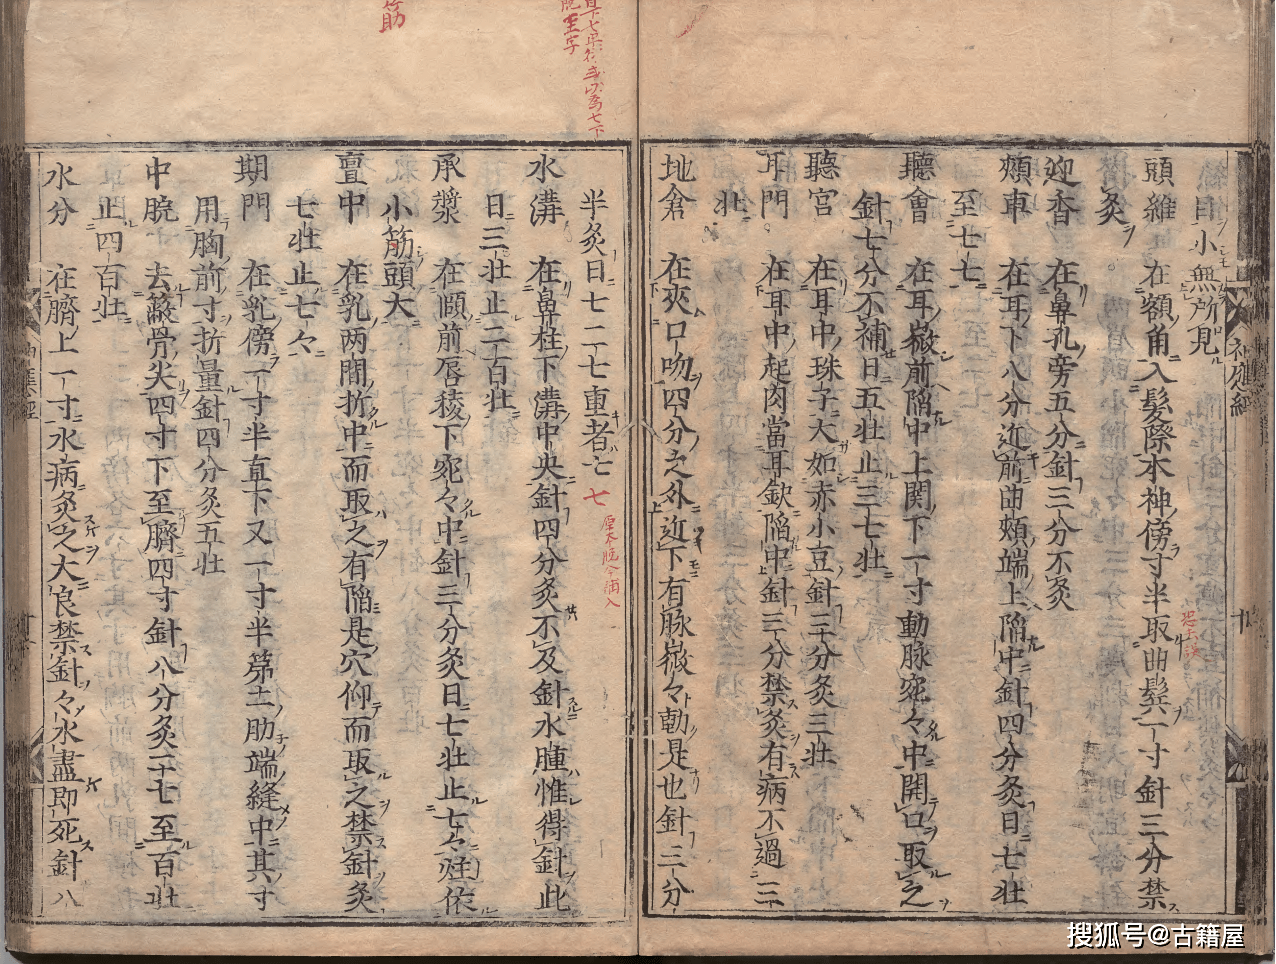 䀮目小無所見
頭維　在額角入髮際本神傍寸半取曲鬂一寸針三分禁
灸
迎香　在鼻孔旁五分針三分不灸
頰車　在耳下八分近前曲頰端上陷中針四分灸日七壯
至七七
聽會　在耳微前陷中上関下一寸動脉宛々中開口取之
針七分不補日五壯止三七壯
聽宮　在耳中珠子大如赤小豆針三分灸三壯
耳門　在耳中起肉當耳缺陷中針三分禁灸有病不過三
壯
地倉　在夾口吻四分之外近下有脉微々動是也針三分
半灸日七二七重者七七
水溝　在鼻柱下溝中央針四分灸不及針水腫惟得針此
日三壯止二百壯
承漿　在頤前唇稜下宛々中針三分灸日七壯止七々炷依
小筋頭大
亶中　在乳两間折中而取之有陷是穴仰而取之禁針灸
七壯止七々
期門　在乳傍一寸半直下又一寸半第二肋端縫中其寸
用胸前寸折量針四分灸五壯
中脘　去蔽骨尖四寸下至臍四寸針八分灸二七至百壯
止四百壯
水分　在臍上一寸水病灸之大良禁針々水盡即死針八
神應經
原本脫今補入
搜狐号@古籍屋